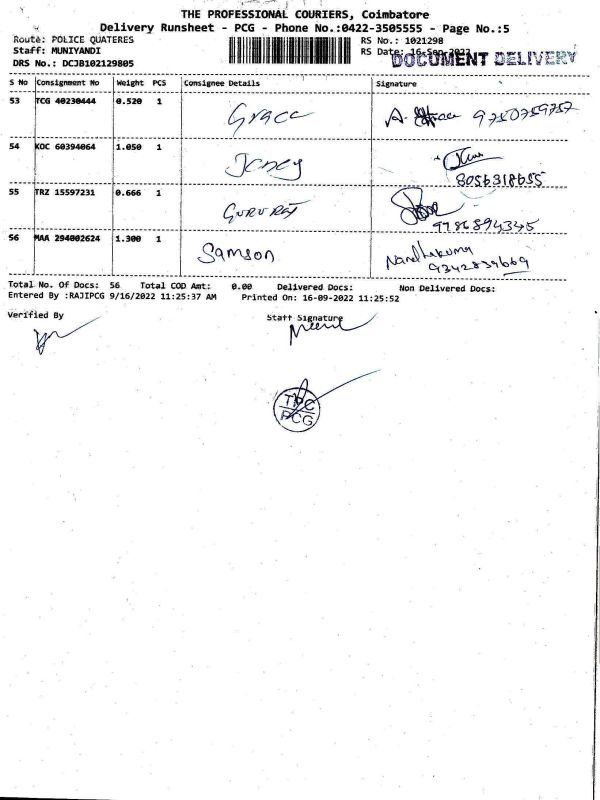 THE PROFESSIONAL COURIERS, Coimbatore
Delivery Runsheet - PCG - Phone No.:0422-3505555 - Page No.:5
Route: POLICE QUATERES RS No.: 1021298
Staff: MUNIYANDI RS Date: 16-Sep-2022
DOCUMENT DELIVERY
DRS No.: DCJB102129805
S No Consignment No Weight PCS Consignee Details Signature
53 TCG 40230444 0.520 1 Grace A. 9750759757
54 KOC 60394064 1.050 1 Jency 8056318655
55 TRZ 15597231 0.666 1 GURURAJ 9786894345
56 MAA 294002624 1.300 1 Samson Nandhakumar 9342839669
Total No. Of Docs: 56 Total COD Amt: 0.00 Delivered Docs: Non Delivered Docs:
Entered By :RAJIPCG 9/16/2022 11:25:37 AM Printed On: 16-09-2022 11:25:52
Verified By Staff Signature
TPC
PCG